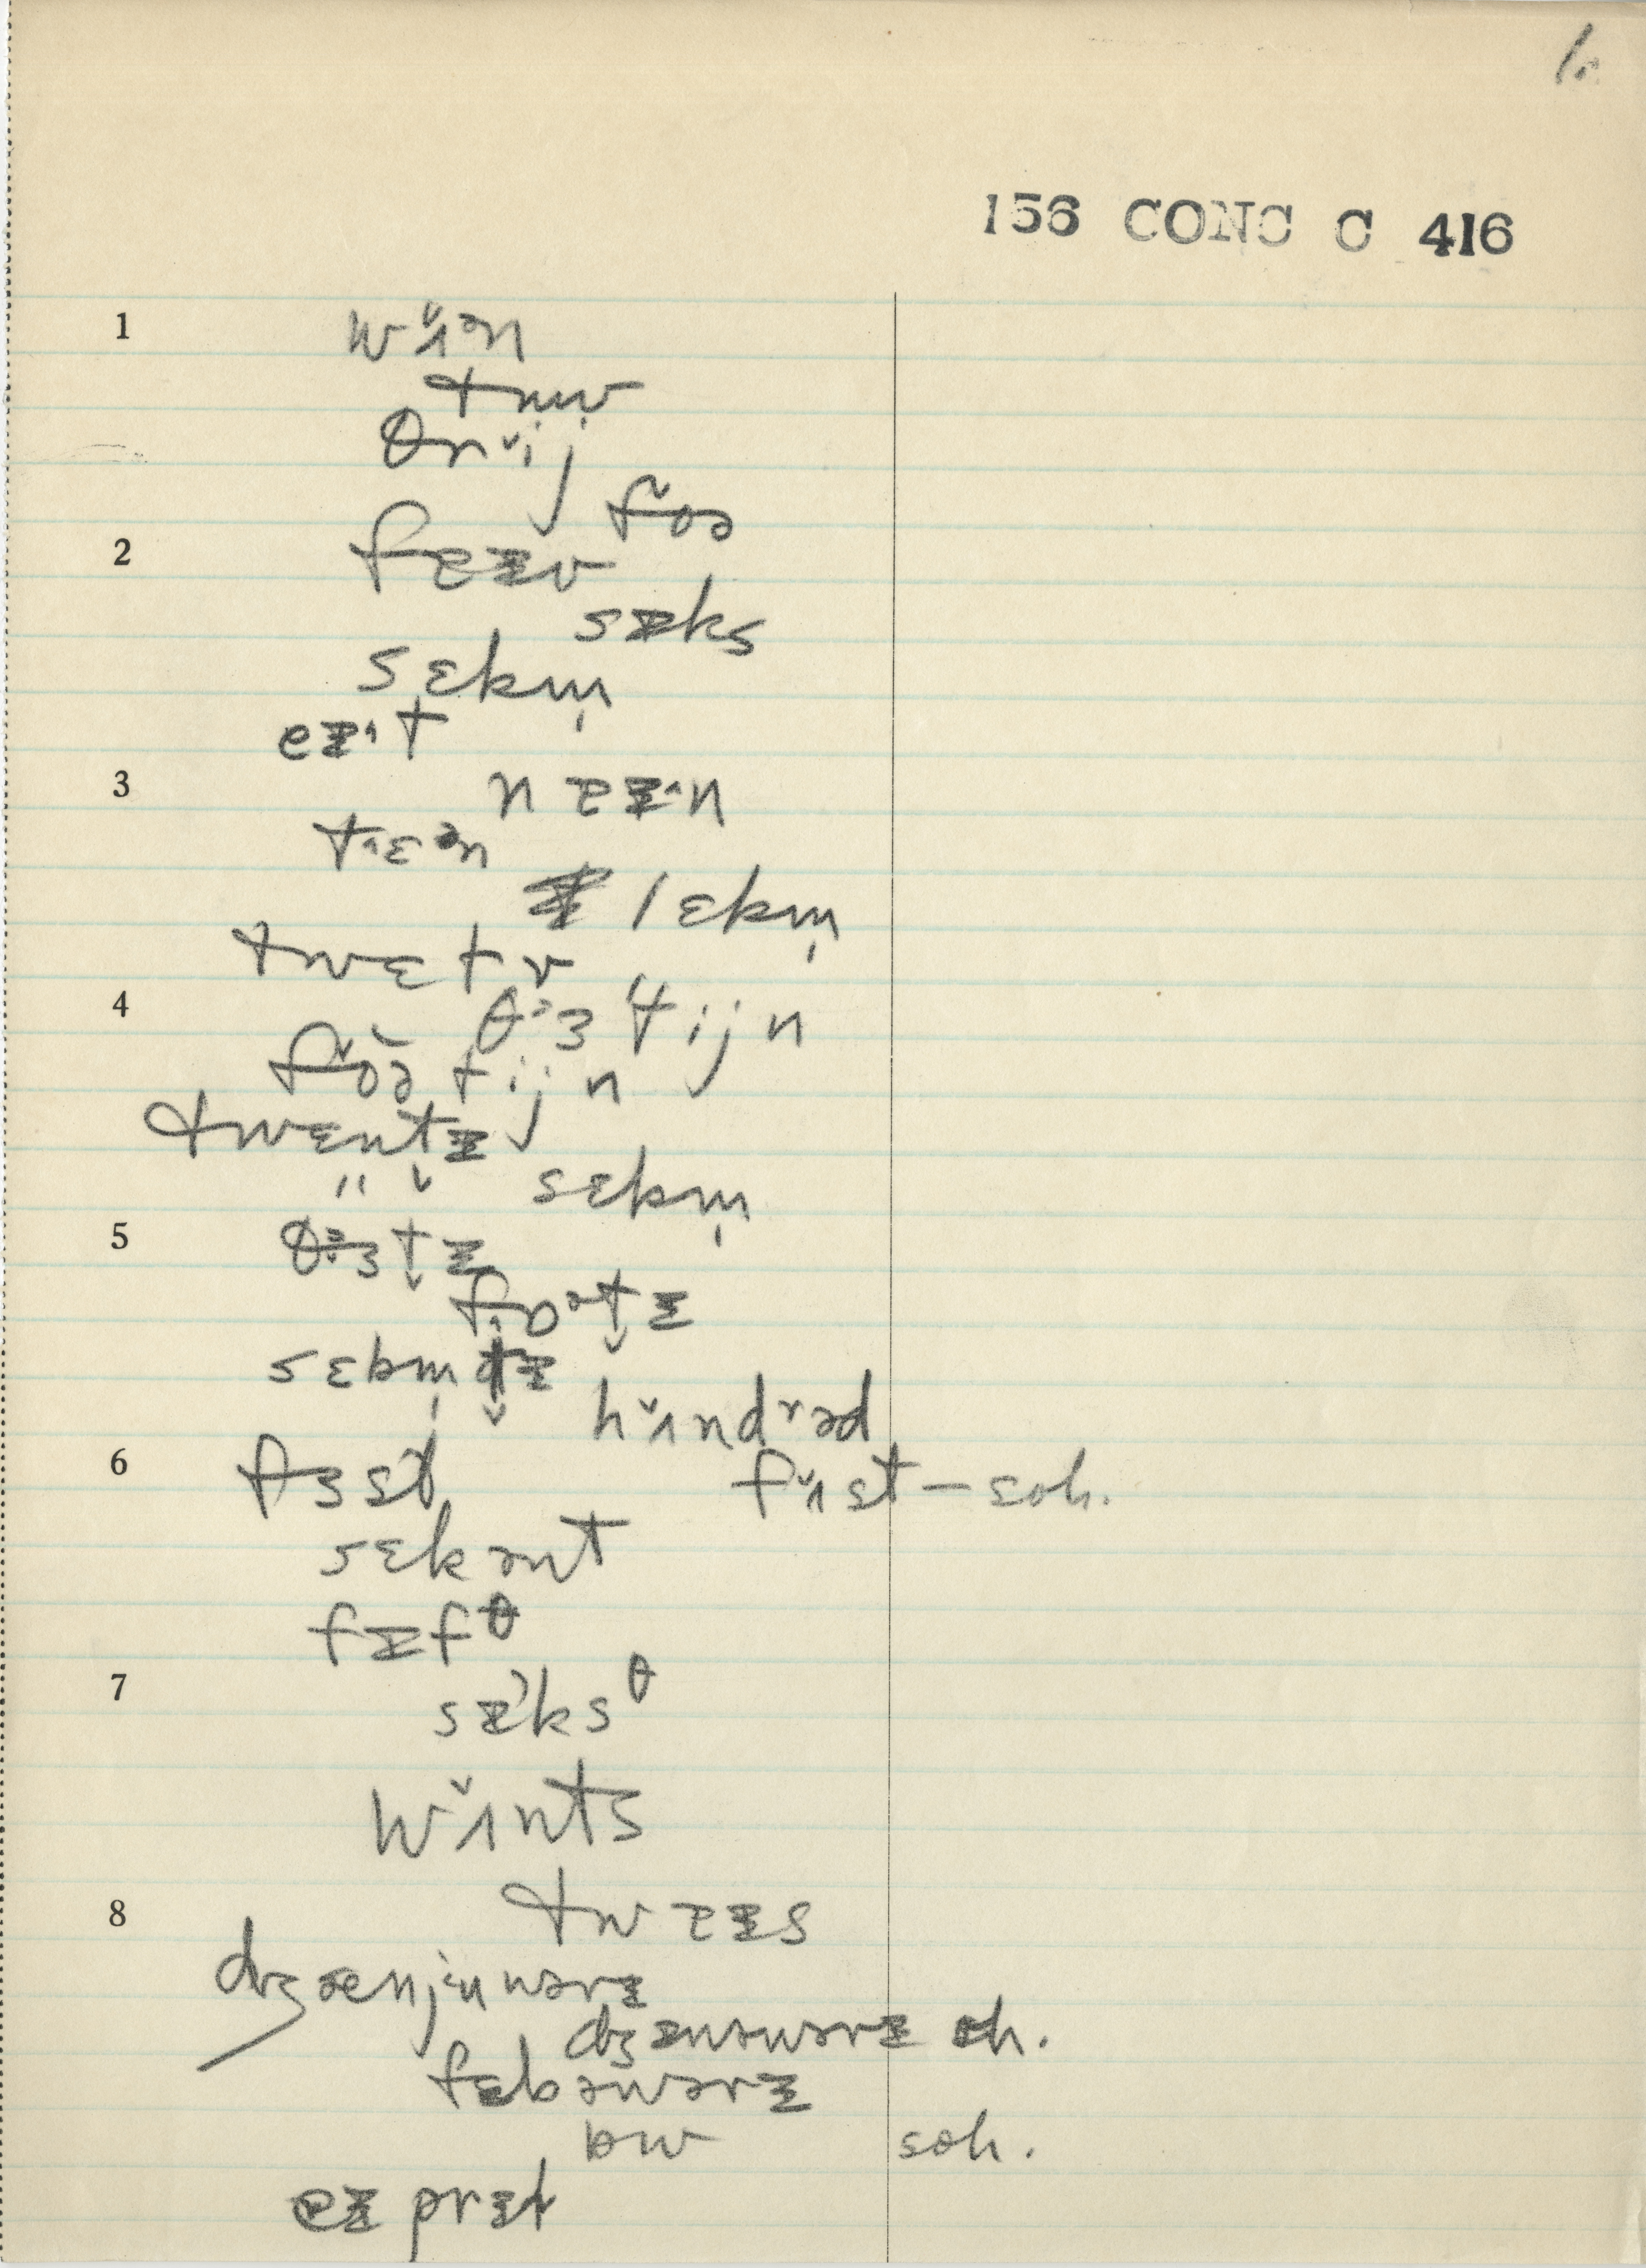 1.
156 CONC C 416
1 wʌ̆ᵊn
tʉw
θrᵛij
fŏə
2 faɪv
sɪks
sɛbm̩
eɪˑt
3 naɪˑn
tˑɛᵊn
lɛbm̩
twɛlv
4 θᵊɜtijn
fŏə̆tijn
twɛntɪ
" ̬ sɛbm̩
5 θᵊɜt̬ɪ
foᵊt̬ɪ
sɛbm̩t̬ɪ
hʌ̆ndʳəd
6 fɜst
fʌ̆st – soh.
sɛkənt
fɪfθ
7 sɪksθ
wʌ̆nts
8 twaɪs
dʒænjʉwərɪ
dʒɛnəwərɪ oh.
fɛbəwərɪ
bw soh.
eɪprɪl